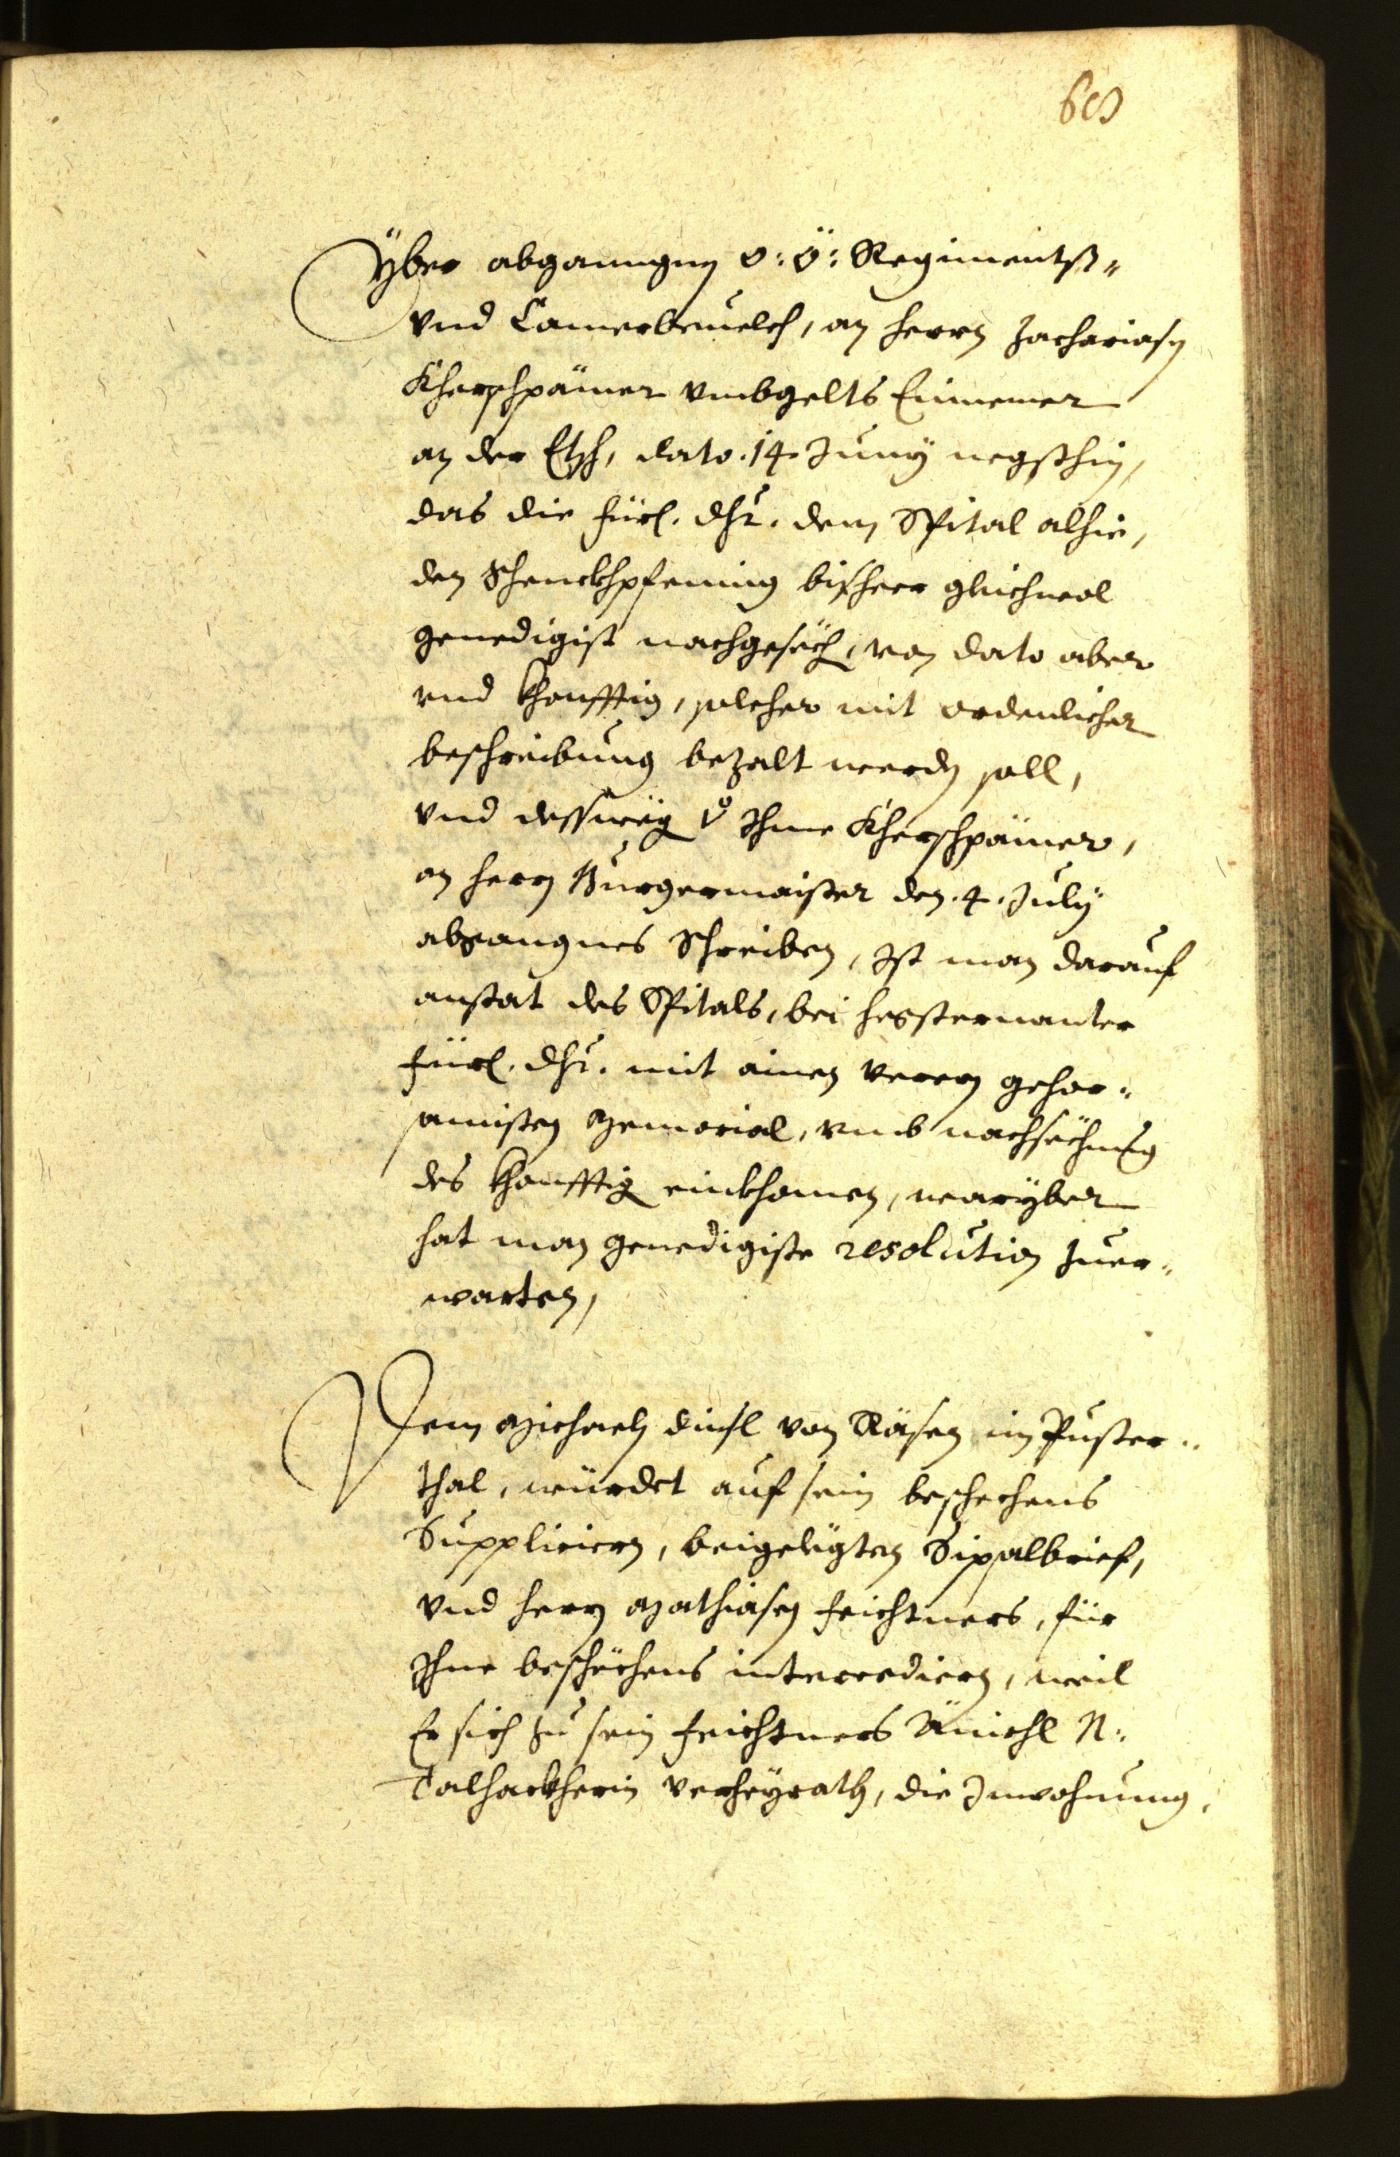 60
Yber abganngnen O: Ö: Regimentß-
vnd Camerbeuelch, an herrn Zachariasn
Kherschpämer vmbgelts Einnemer
an der Etsch, dato .14. Juny negsthin,
das die fürl. dhr. dem Spital alhie,
den Schenckhpfening bisheer gleichwol
genedigist nachgesech, von dato aber
vnd khonfftig, solcher mit ordenlicher
beschreibung bezalt werdn soll,
vnd desswög vo Ihme Kherschpämer,
an herrn Burgermaister den .4. July
abganngnes Schreiben, Ist man darauf
anstat des Spitals, bei hegsternanter
fürl. dhr. mit ainen verern gehor-
samisten Memorial, vmb nachsechung
des khonfftig einkhomen, waryber
hat man genedigiste resolution zuer-
warten,
Dem Michaeln von Räsen in Puster-
thal, würdet auf sein beschechens
Suppliciern, beigelegten Sipsalbrief,
vnd herrn Mathiasen Feichtners, für
Ihne beschechens intercediern, weil
Er sich zu sein Feichtners Änichl N:
Talhackherin verheyrath, die Inwohnung,